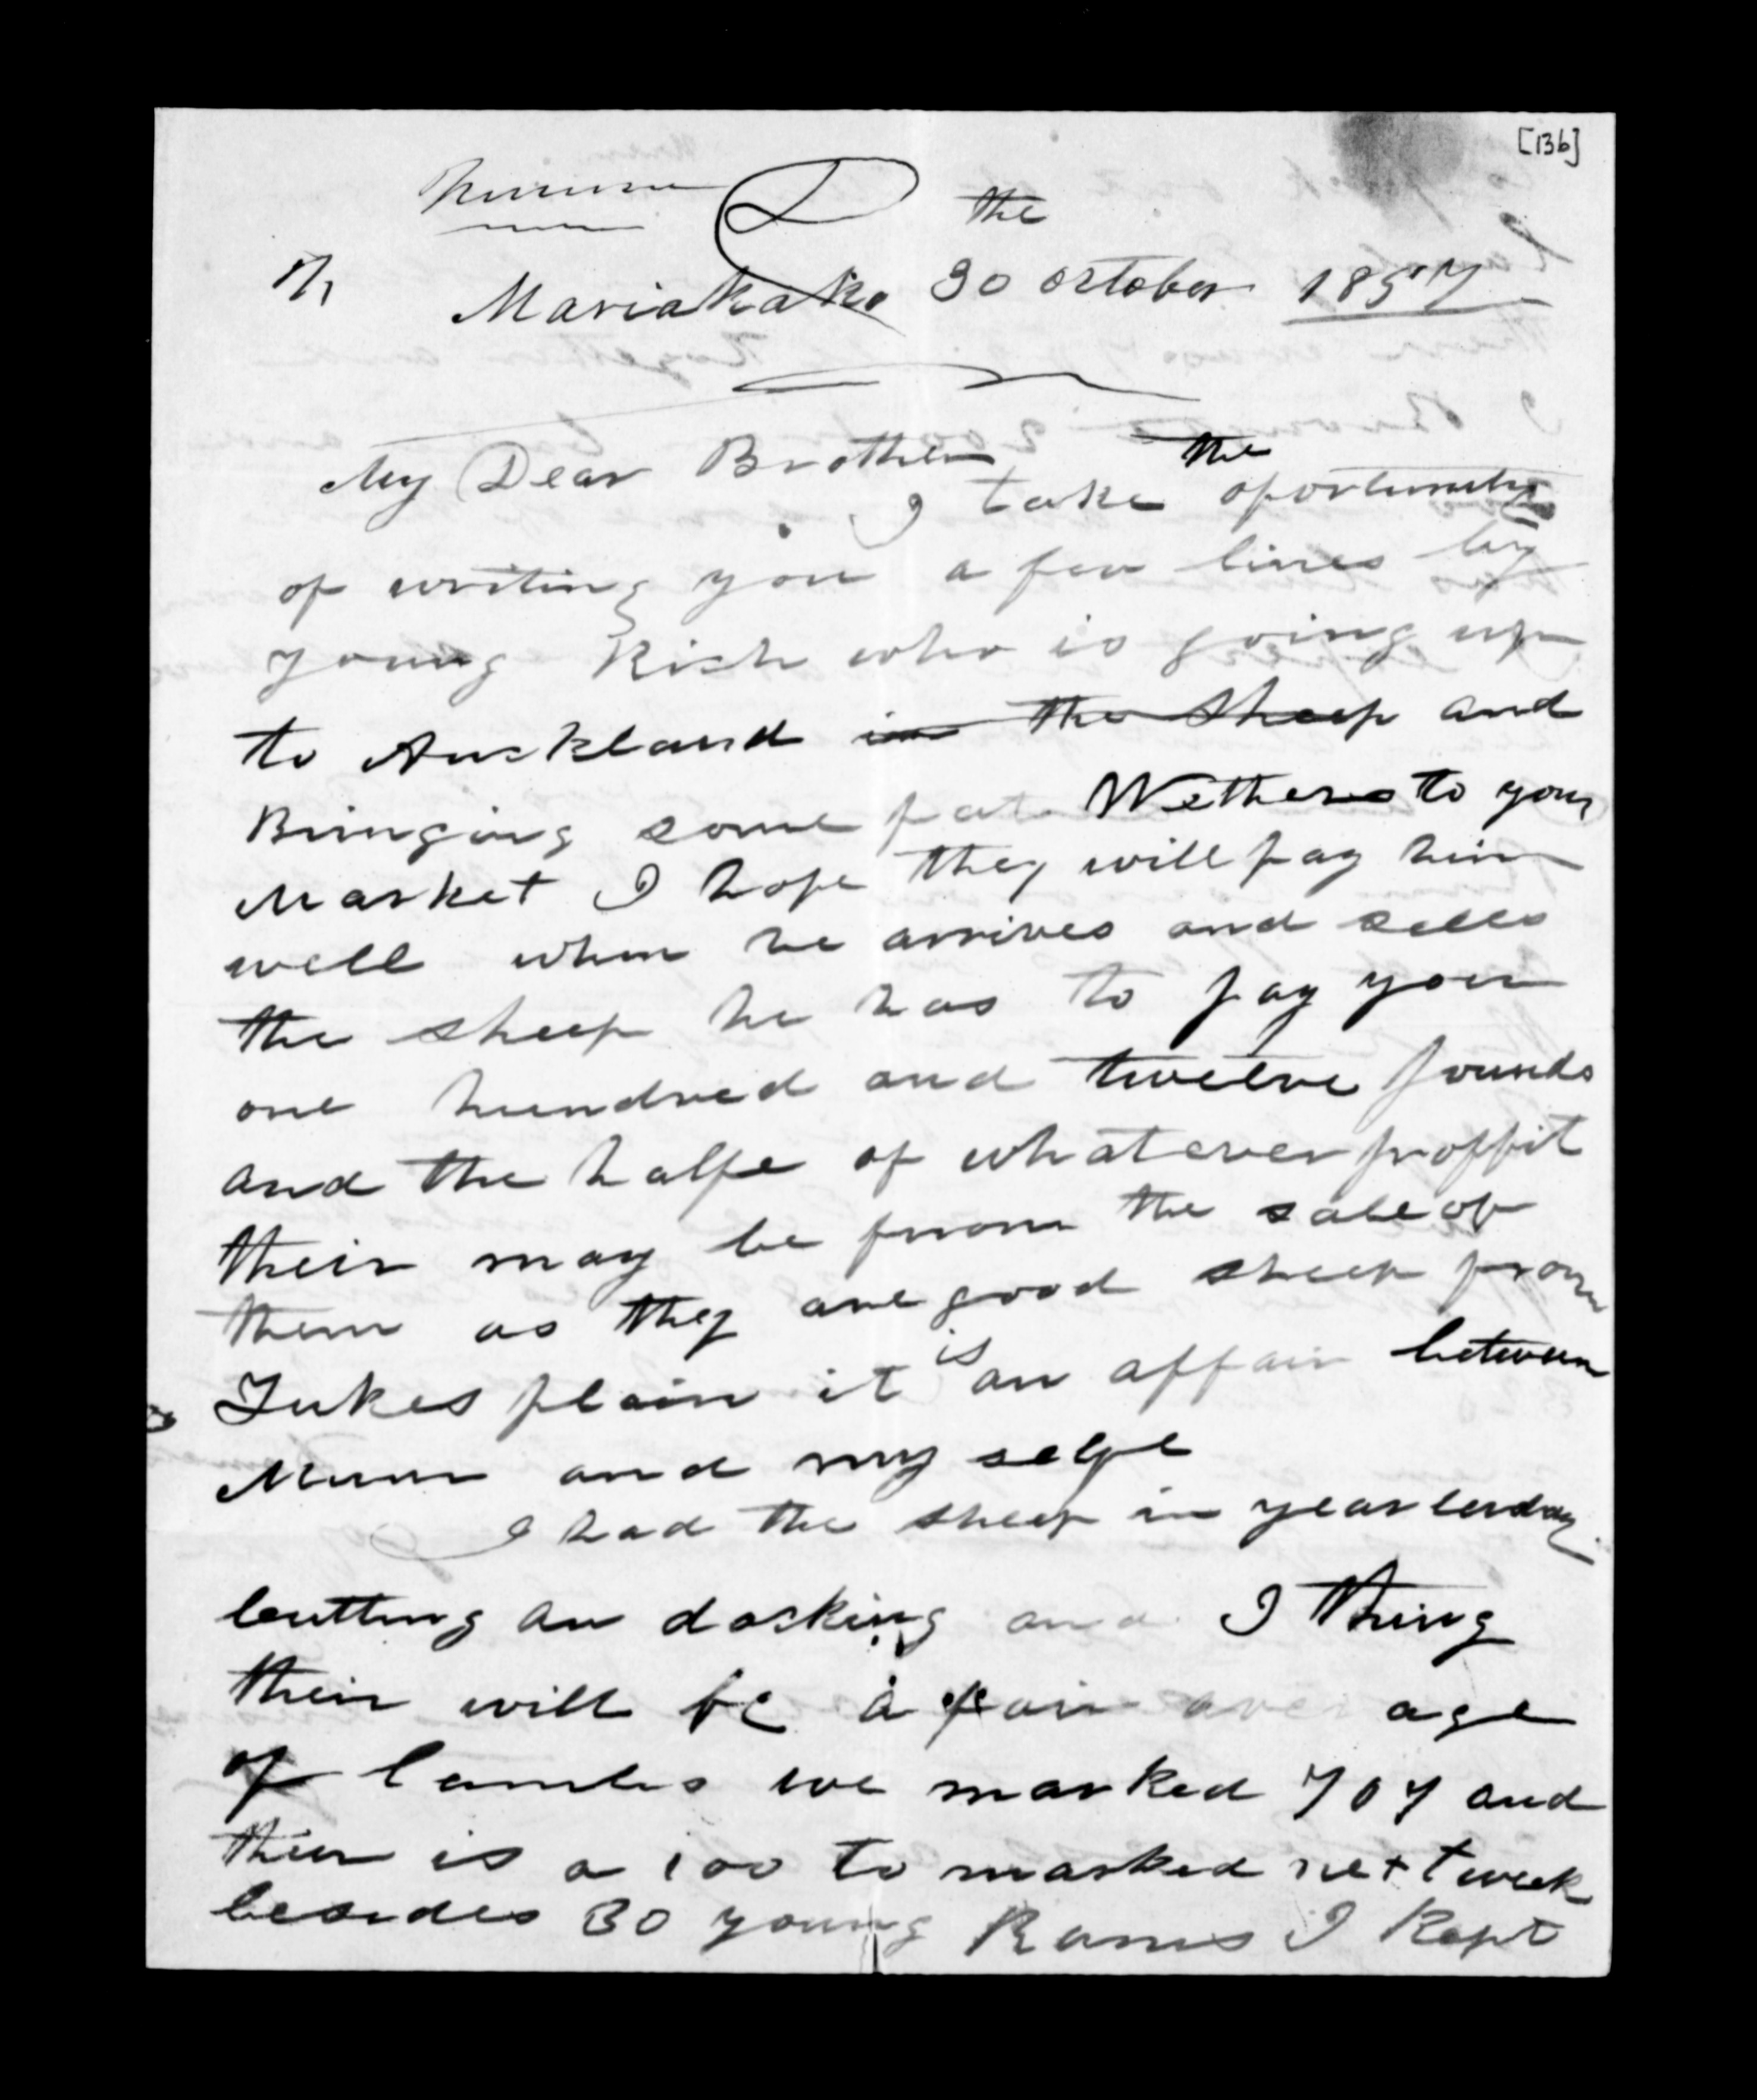 [136]
the
Mariakako 30 october 1857
My Dear Brother
I take the oportunity
of writing you a few lines by
young Rich who is going up
to Auckland in the sheep and
Bringing some fat Wethers to your
Market I hope they will pay him
well when he arrives and sells
the sheep he has to pay you
one hundred and twelve pounds
and the halfe of whatever proffit
their may be from the sale of
them as they are good sheep from
plain it is an affair between
and my selfe
I had the sheep in yearlerday
cutting an docking and I thing
their will be a fair average
of lambs we marked 707 and
their is a 100 to marked next week
besides 30 young Rams I Kept